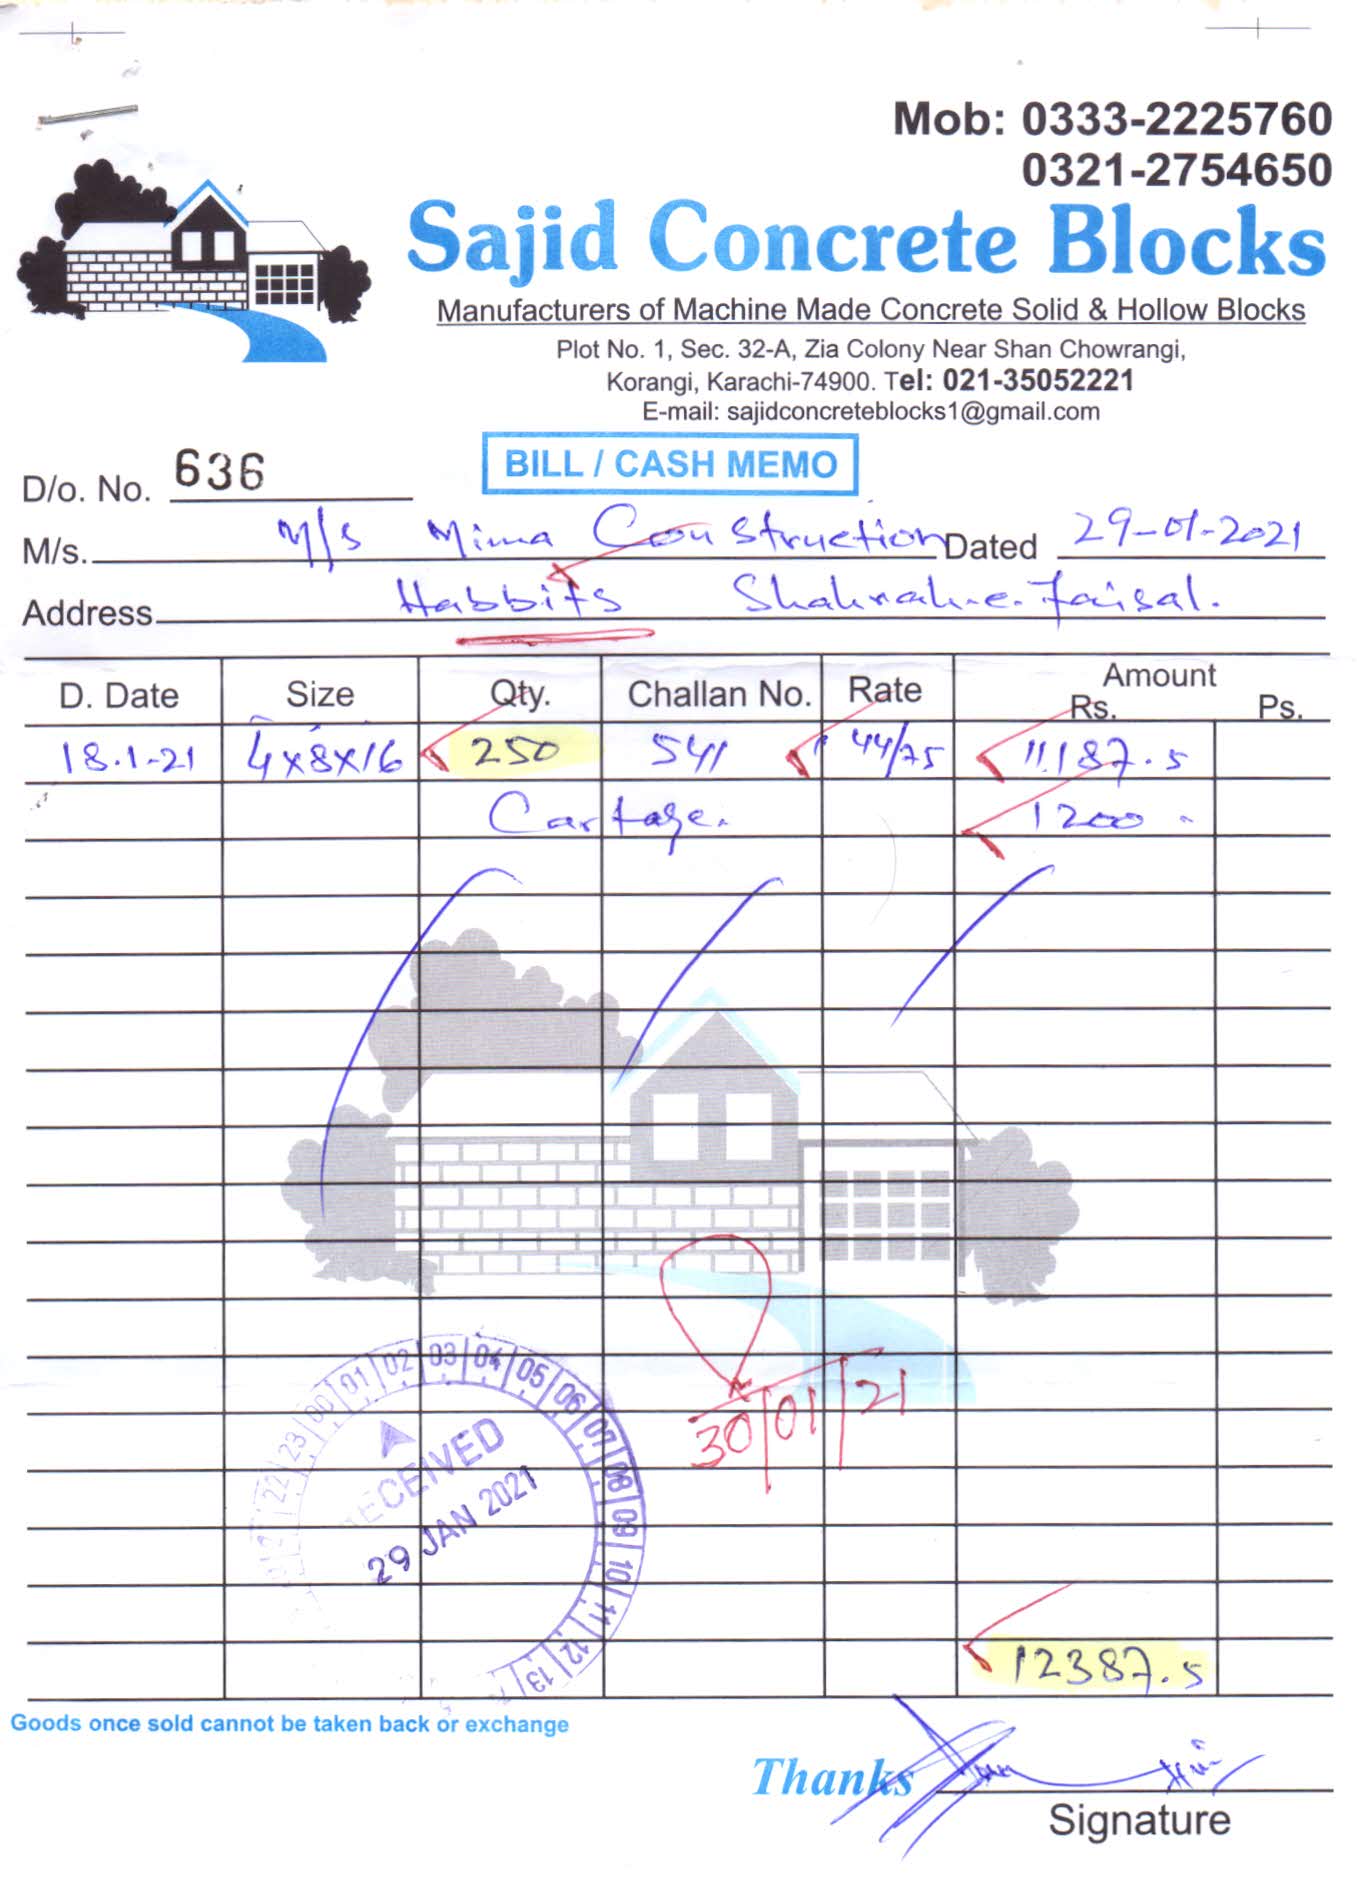 Mob: 0333-2225760
0321-2754650
Sajid Concrete Blocks
Manufacturers of Machine Made Concrete Solid & Hollow Blocks
Plot No. 1, Sec. 32-A, Zia Colony Near Shan Chowrangi,
Korangi, Karachi-74900. Tel: 021-35052221
E-mail: sajidconcreteblocks1@gmail.com
BILL / CASH MEMO
D/o. No. 636
M/s. M/s Mima Construction Dated 29-01-2021
Address Habbits Shahrah.e.Faisal.
D. Date Size Qty. Challan No. Rate Amount Rs. Ps.
18.1-21 4x8x16 250 541 44/75 11187.5
Cartage. 1200 -
00 01 02 03 04 05 06 07 08 09 10 11 12 13 22 23
RECEIVED
29 JAN 2021
30/01/21
12387.5
Goods once sold cannot be taken back or exchange
Thanks
Signature